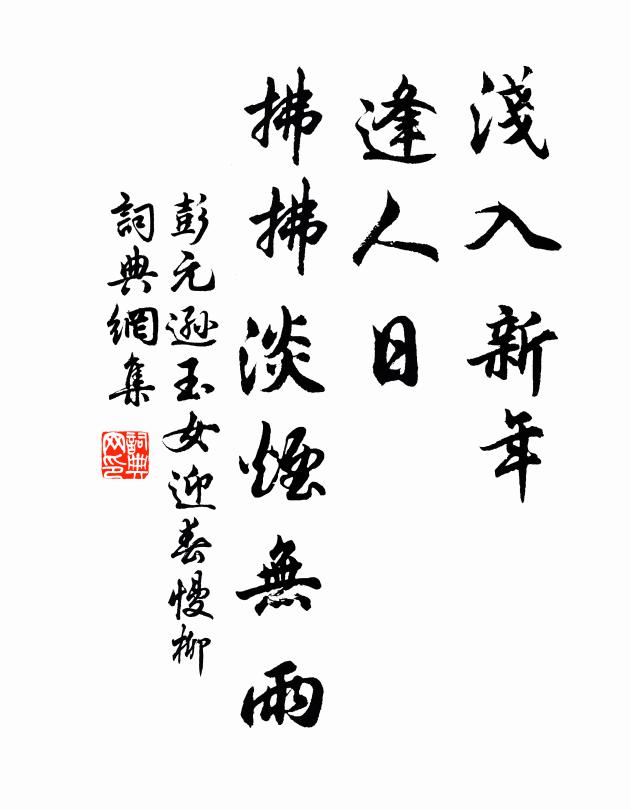 淺入新年
逢人日
拂拂淡煙無雨
彭元遜玉女迎春慢柳
詞典網集
詞典网印